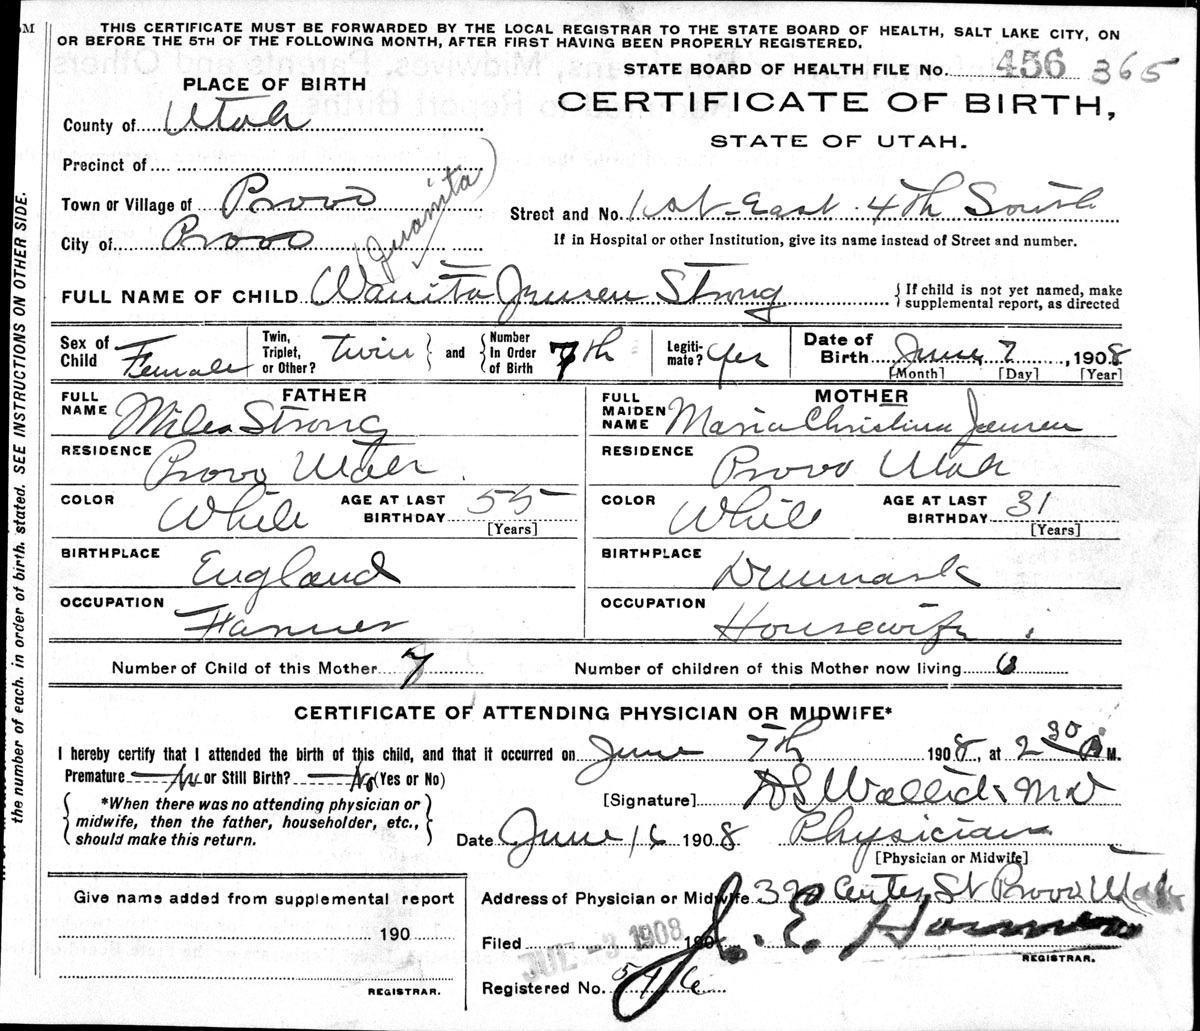 THIS CERTIFICATE MUST BE FORWARDED BY THE LOCAL REGISTRAR TO THE STATE BOARD OF HEALTH, SALT LAKE CITY, ON
OR BEFORE THE 5TH OF THE FOLLOWING MONTH, AFTER FIRST HAVING BEEN PROPERLY REGISTERED.
STATE BOARD OF HEALTH FILE No. 456 365
PLACE OF BIRTH
CERTIFICATE OF BIRTH,
STATE OF UTAH.
County of Utah
Precinct of
Town or Village of Provo
Street and No. 1st East 4th South
City of Provo
If in Hospital or other Institution, give its name instead of Street and number.
(Juanita)
FULL NAME OF CHILD Wanita Jensen Strong
If child is not yet named, make supplemental report, as directed
Sex of Child Female
Twin, Triplet, or Other? twin and Number In Order of Birth 7th
Legitimate? Yes
Date of Birth June 7, 1908
[Month] [Day] [Year]
FATHER
FULL NAME Miles Strong
RESIDENCE Provo Utah
COLOR White AGE AT LAST BIRTHDAY 55
[Years]
BIRTHPLACE England
OCCUPATION Farmer
MOTHER
FULL MAIDEN NAME Maria Christina Jensen
RESIDENCE Provo Utah
COLOR White AGE AT LAST BIRTHDAY 31
[Years]
BIRTHPLACE Denmark
OCCUPATION Housewife
Number of Child of this Mother 7
Number of children of this Mother now living 6
CERTIFICATE OF ATTENDING PHYSICIAN OR MIDWIFE*
I hereby certify that I attended the birth of this child, and that it occurred on June 7th 1908, at 2 30 M.
Premature No or Still Birth? No (Yes or No)
*When there was no attending physician or
midwife, then the father, householder, etc.,
should make this return.
[Signature]
Date June 16 1908 Physician
[Physician or Midwife]
Give name added from supplemental report
190
REGISTRAR.
Address of Physician or Midwife Center St Provo Utah
Filed JUL -3 1908 190
J. E.
REGISTRAR.
Registered No.
the number of each, in order of birth, stated. SEE INSTRUCTIONS ON OTHER SIDE.